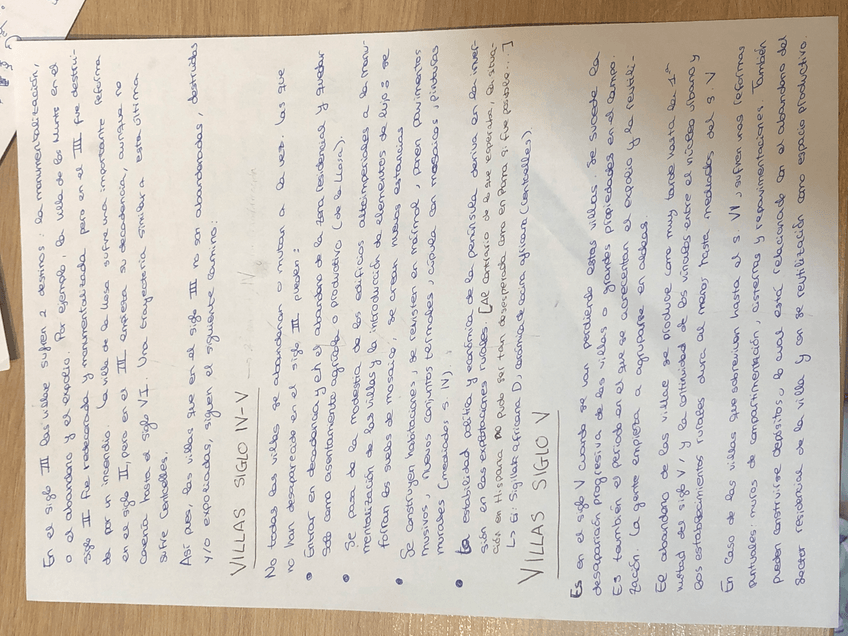 En el siglo III las villae sufren 2 destinos: la monumentalización,
o el abandono y el expolio. Por ejemplo, la villa de los Munts en el
siglo II fue redecorada y monumentalizada pero en el III fue destrui-
da por un incendio. La villa de la Llosa sufre una importante reforma
en el siglo II, pero en el III empieza su decadencia, aunque no
caería hasta el siglo VI. Una trayectoria similar a esta última
sufre Centcelles.
Así pues, las villas que en el siglo III no son abandonadas, destruidas
y/o expoliadas, siguen el siguiente camino:
VILLAS SIGLO IV-V
No todas las villas se abandonan o mutan a la vez. Las que
no han desaparecido en el siglo III pueden:
• Entrar en decadencia y/en el abandono de la zona residencial y quedar
solo como asentamiento agrícola o productivo (de la Llosa).
• Se pasa de la modestia de los edificios altoimperiales a la monu-
mentalización de las villas y la introducción de elementos de lujo: se
forran los suelos de mosaico, se crean nuevas estancias
• Se construyen habitaciones, se revisten en mármol, ponen pavimentos
musivos, nuevos conjuntos termales, cúpula con mosaicos, pinturas
murales (mediados s. IV).
• La estabilidad política y económica de la península deriva en la inver-
sión en las explotaciones rurales. [Al contrario de lo que esperaba, la situa-
ción en Hispania no pudo ser tan desesperada como en Roma si fue posible...]
↳ Ej: Sigillata africana D, cerámica de cocina africana (Centcelles).
VILLAS SIGLO V
Es en el siglo V cuando se van perdiendo estas villas. Se sucede la
desaparición progresiva de las villas o grandes propiedades en el campo.
Es también el periodo en el que se acrecentan el expolio y la reutili-
zación. La gente empieza a agruparse en aldeas.
El abandono de las villae se produce como muy tarde hasta la 1ª
mitad del siglo V, y la continuidad de los vínculos entre el núcleo urbano y
los establecimientos rurales dura al menos hasta mediados del s. V
En caso de las villas que sobreviven hasta el s. VI, sufren unas reformas
puntuales: muros de compartimentación, cisternas y repavimentaciones. También
pueden construirse depósitos, lo cual está relacionado con el abandono del
sector residencial de la villa y con su reutilización como espacio productivo.